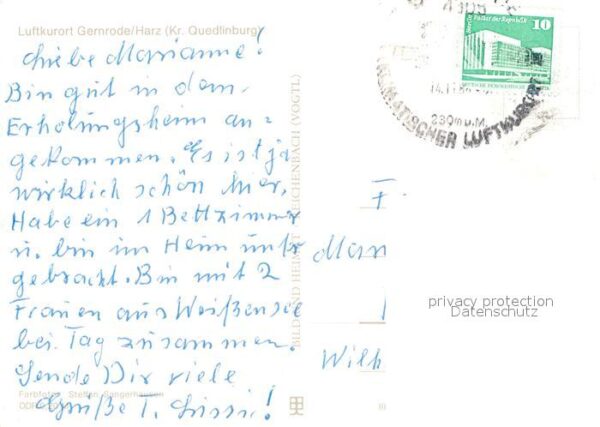 Luftkurort Gernrode/Harz (Kr. Quedlinburg)
Liebe Marianne!
Bin gut in dem
Erholungsheim an-
gekommen. Es ist ja
wirklich schön hier,
Habe ein 1 Bettzimmer
u. bin im Heim unter
gebracht. Bin mit 2
Frauen aus Weißensee
bei Tag zusammen.
Sende Dir viele
Grüße T. Lissi!
Farbfoto: Steffen, Sangerhausen
BILD UND HEIMAT REICHENBACH (VOGTL)
Berlin, Palast der Republik
10
DDR
14.11.
230m ü.M.
KLIMATISCHER LUFTKURORT
F
Mari
Wilh
privacy protection
Datenschutz